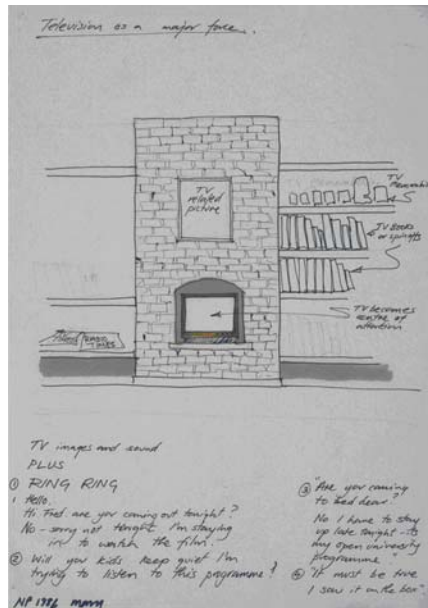 Television as a major force.
TV
related
picture
TV
TV Books
or spinoffs
TV becomes
centre of
attention
TIMES
TV images and sound
PLUS
① RING RING
Hello.
Hi Fred. are you coming out tonight?
No - sorry not tonight I'm staying
in to watch the film.
② Will you kids keep quiet I'm
trying to listen to this programme!
③ "Are you coming
to bed dear?"
No I have to stay
up late tonight - its
my open university
programme."
④ "It must be true
I saw it on the box"
NP 1986